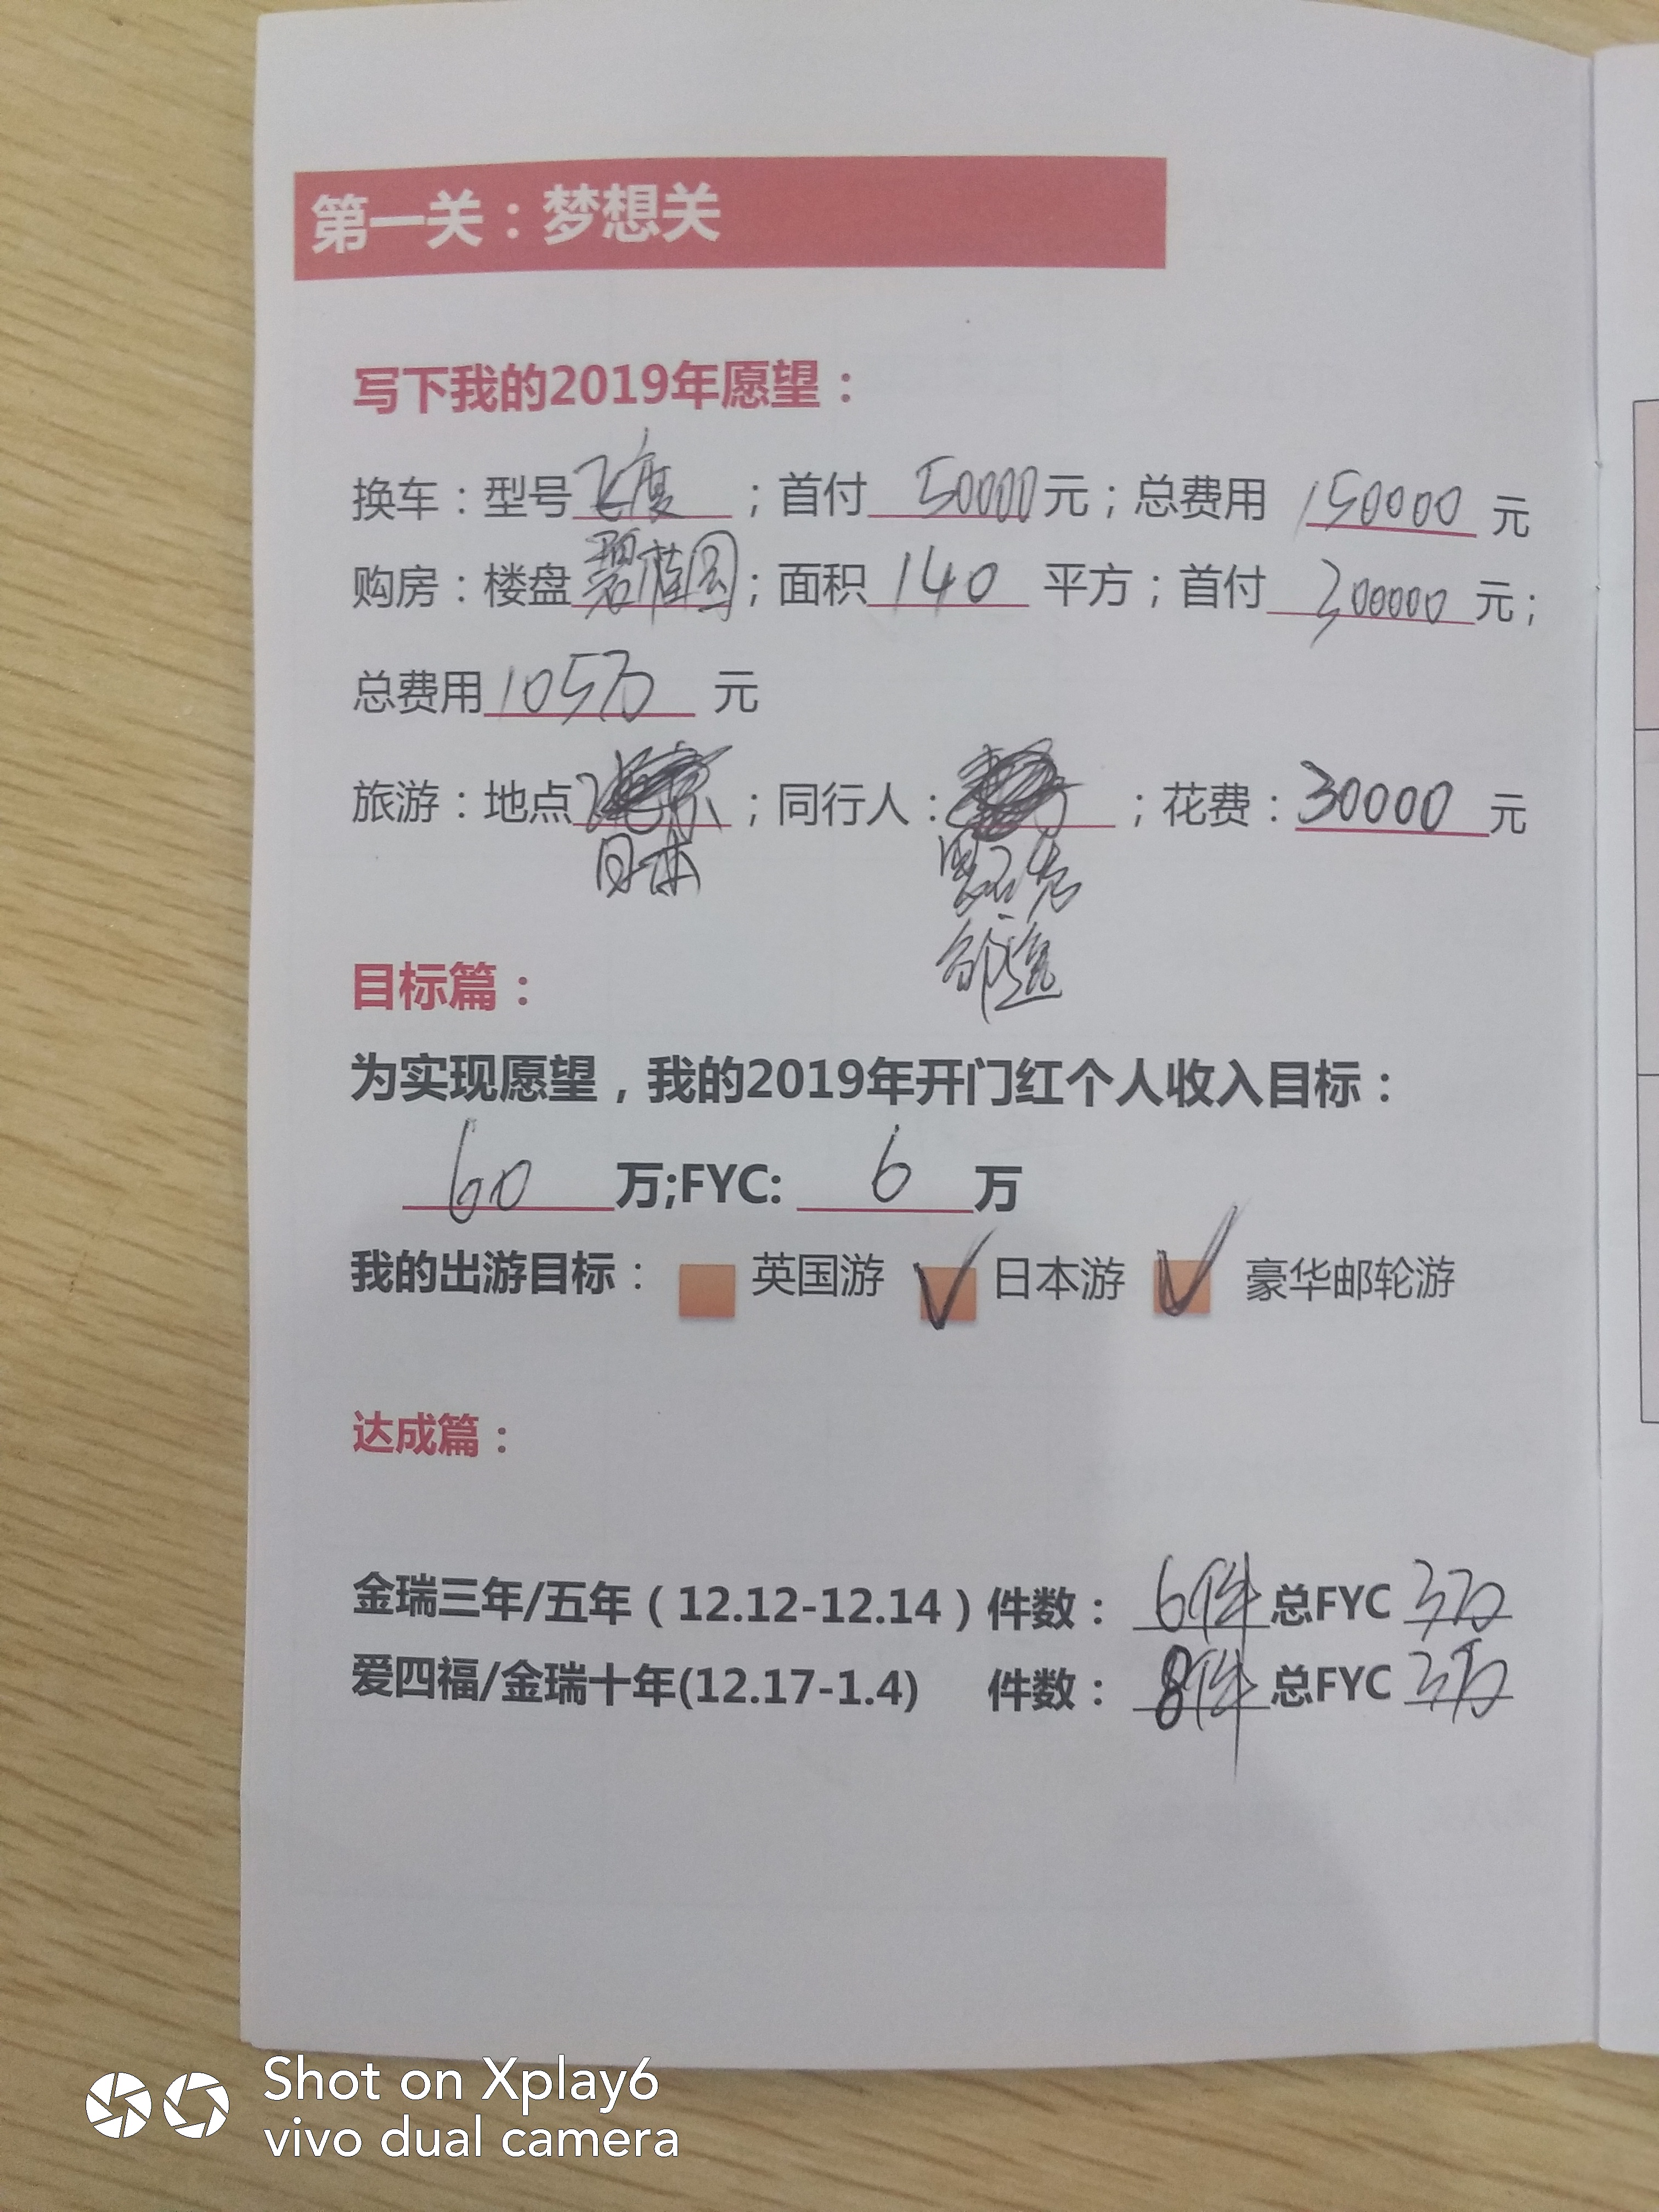 第一关：梦想关
写下我的2019年愿望：
换车：型号飞度；首付50000元；总费用150000元
购房：楼盘碧桂园；面积140平方；首付300000元；
总费用105万元
旅游：地点；同行人：；花费：30000元
日本
目标篇：
为实现愿望，我的2019年开门红个人收入目标：
60万;FYC: 6万
我的出游目标： 英国游 日本游 豪华邮轮游
达成篇：
金瑞三年/五年（12.12-12.14）件数：6件总FYC 3万
爱四福/金瑞十年(12.17-1.4) 件数：8件总FYC 3万
Shot on Xplay6
vivo dual camera